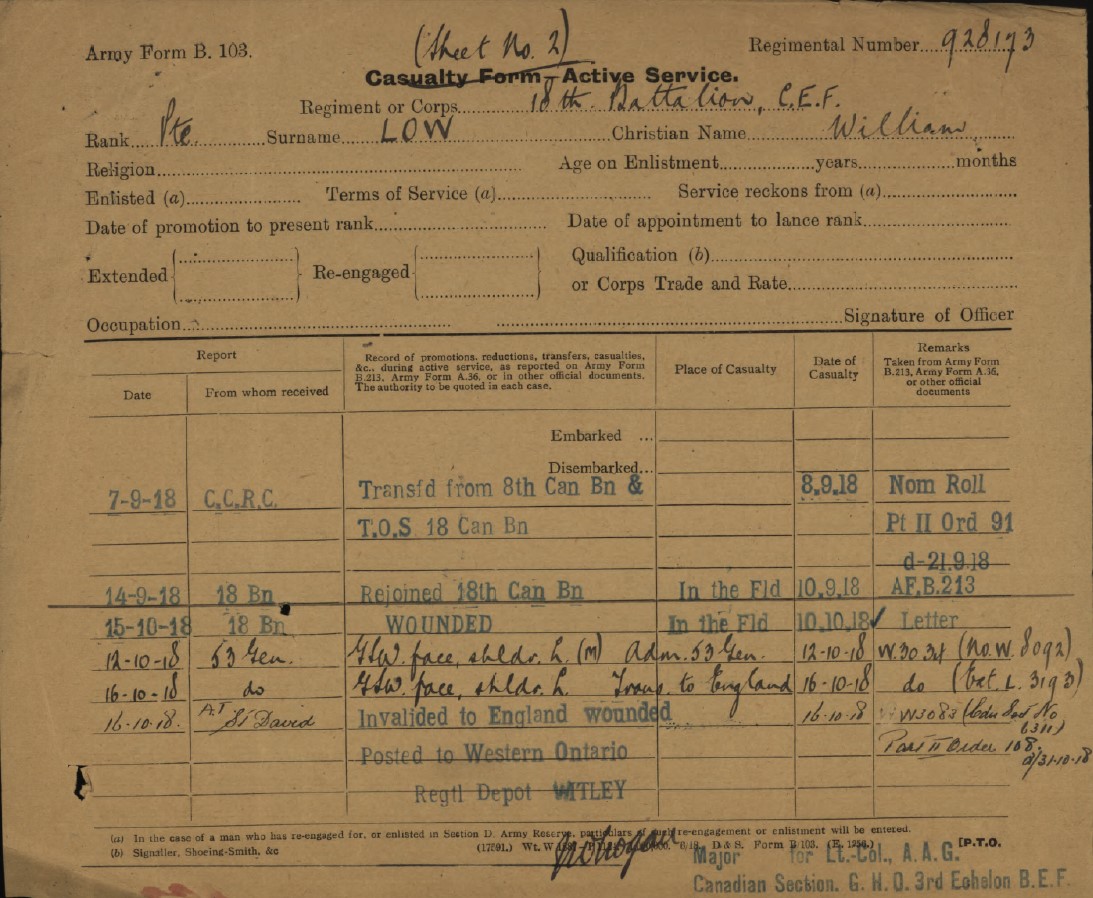 (Sheet No. 2)
Army Form B. 103.
Regimental Number 928173
Casualty Form—Active Service.
Regiment or Corps 18th Battalion, C.E.F.
Rank Pte Surname LOW Christian Name William
Religion Age on Enlistment years months
Enlisted (a) Terms of Service (a) Service reckons from (a)
Date of promotion to present rank Date of appointment to lance rank
Extended Re-engaged Qualification (b)
or Corps Trade and Rate
Occupation Signature of Officer
Report
Date From whom received
Record of promotions, reductions, transfers, casualties,
&c., during active service, as reported on Army Form
B.213, Army Form A.36, or in other official documents.
The authority to be quoted in each case.
Place of Casualty
Date of
Casualty
Remarks
Taken from Army Form
B.213, Army Form A.36,
or other official
documents
Embarked ...
Disembarked...
7-9-18 C.C.R.C. Transfd from 8th Can Bn & 8.9.18 Nom Roll
T.O.S 18 Can Bn Pt II Ord 91
d-21.9.18
14-9-18 18 Bn Rejoined 18th Can Bn In the Fld 10.9.18 AF.B.213
15-10-18 18 Bn WOUNDED In the Fld 10.10.18 ✓ Letter
12-10-18 53 Gen. GSW. face, shldr. L. (M) Adm. 53 Gen. 12-10-18 W.3034 (No. W. 8092)
16-10-18 do GSW. face, shldr. L. Trans. to England 16-10-18 do (Cat. L. 3193)
16-10-18. A.T St David Invalided to England wounded 16-10-18 W3083 (Cdn No
6311)
Posted to Western Ontario Part II Order 108.
d/31-10-18
Regtl Depot WITLEY
(a) In the case of a man who has re-engaged for, or enlisted in Section D, Army Reserve, particulars of such re-engagement or enlistment will be entered.
(b) Signaller, Shoeing-Smith, &c (17591.) Wt. W 6/18. D & S. Form B/103. (E. 1256.) [P.T.O.
Major for Lt.-Col., A.A.G.
Canadian Section. G.H.Q. 3rd Echelon B.E.F.